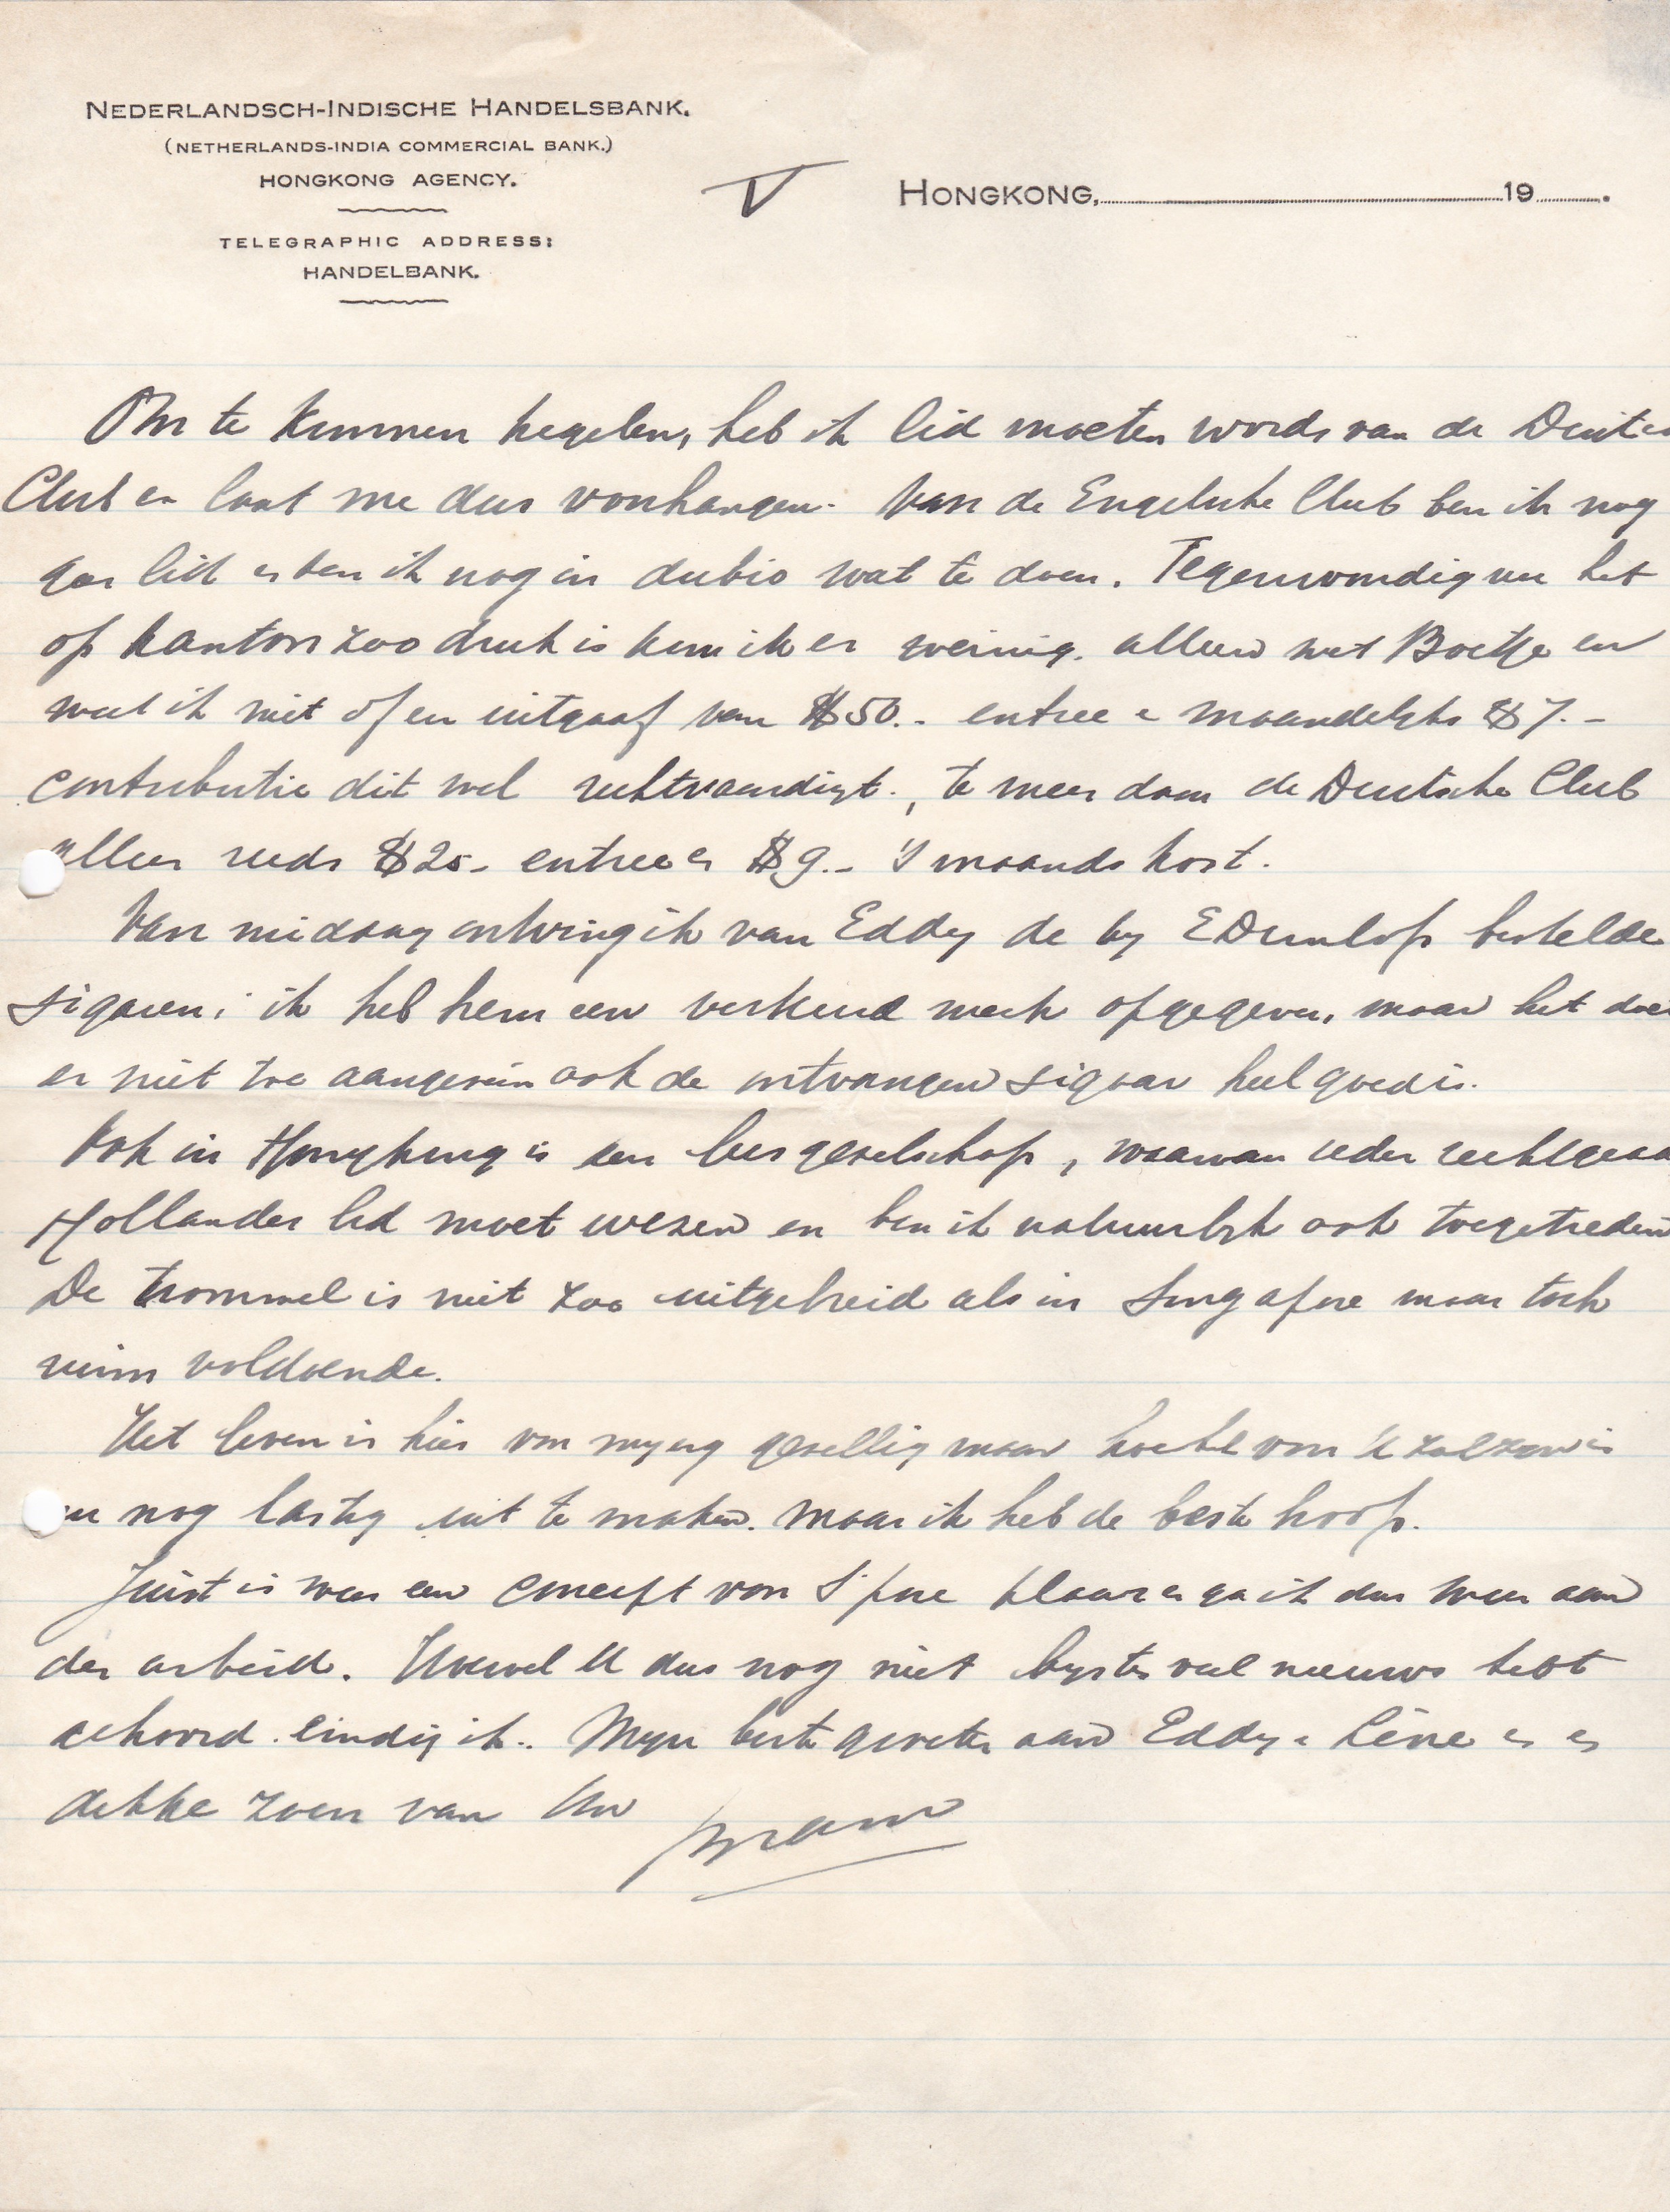 NEDERLANDSCH-INDISCHE HANDELSBANK.
(NETHERLANDS-INDIA COMMERCIAL BANK.)
HONGKONG AGENCY.
TELEGRAPHIC ADDRESS:
HANDELBANK.
V
HONGKONG, 19 .
Om te kunnen kegelen, heb ik lid moeten worden van de
Club en laat me dus voorhangen. Van de Engelsche Club ben ik nog
geen lid en ben ik nog in dubio wat te doen. Tegenwoordig nu het
op kantoor zoo druk is kom ik er weinig. alleen met Boetje en
weet ik niet of een uitgaaf van $50.- entree & maandelijks $7.-
contributie dit wel rechtvaardigt., te meer daar de Duitsche Club
alleen reeds $25.- entree en $9.- 's maands kost.
Van middag ontving ik van Eddy de by EDunlop bestelde
sigaren; ik heb hem een verkeerd merk opgegeven, maar het doet
er niet toe aangezien ook de ontvangen sigaar heel goed is.
Ook in Hongkong is een leesgezelschap, waarvan ieder
Hollander lid moet wezen en ben ik natuurlyk ook toegetreden
De trommel is niet zoo uitgebreid als in Singapore maar toch
ruim voldoende.
Het leven is hier voor my erg gezellig maar hoe het voor U zal zyn is
nu nog lastig uit te maken. maar ik heb de beste hoop.
Juist is weer een concept van S'pore klaar en ga ik dus weer aan
den arbeid. Hoewel U dus nog niet byster veel nieuws hebt
gehoord. eindig ik.. Myn beste groeten aan Eddy & Lène en en
dikke zoen van Uw
Bram